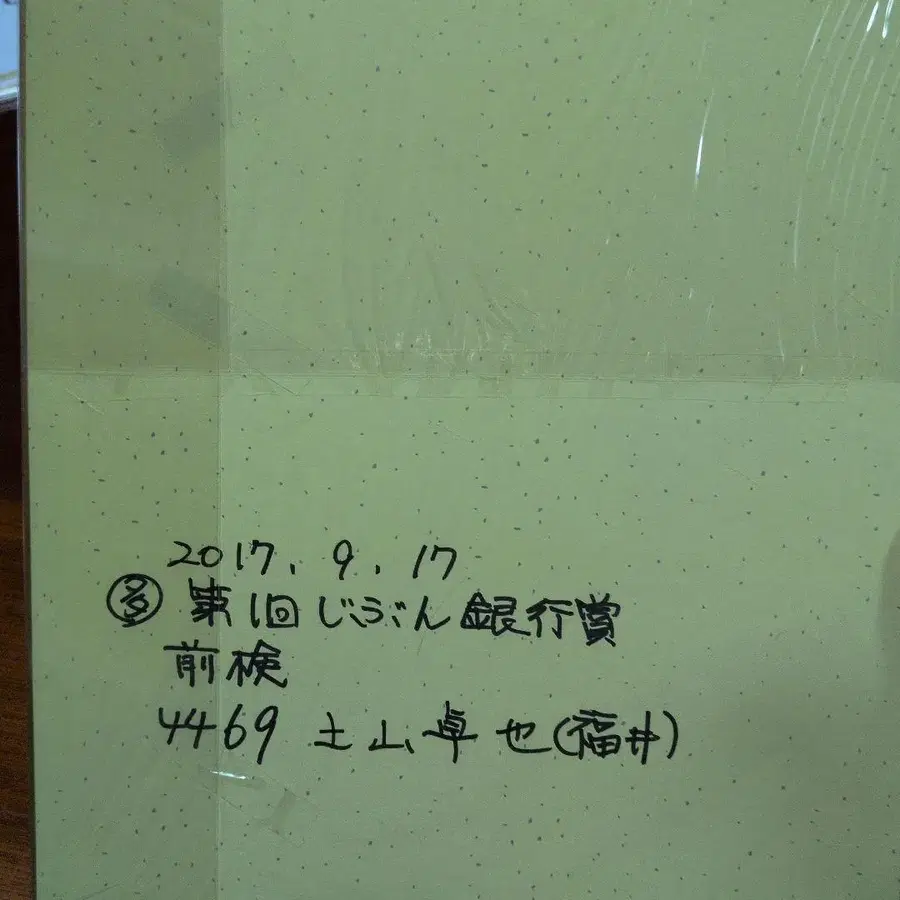 2017.9.17
㊟多 第1回 じぶん銀行賞
前検
4469 土山卓也(福井)